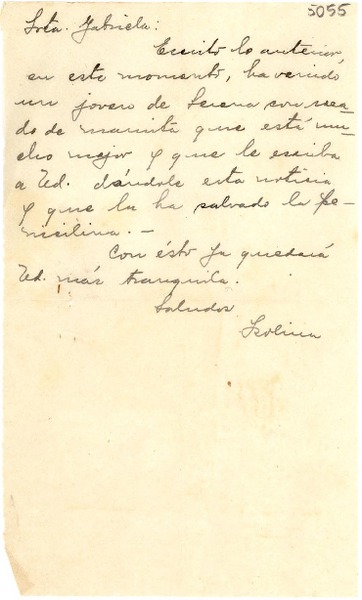 5055
Srta. Gabriela:
Escrito lo anterior,
en este momento, ha venido
un joven de Serena con reca-
do de mamita que está mu-
cho mejor y que le escriba
a Ud. dándole esta noticia
y que la ha salvado la pe-
nicilina. —
Con ésto ya quedará
Ud. más tranquila.
Saludos
Isolina